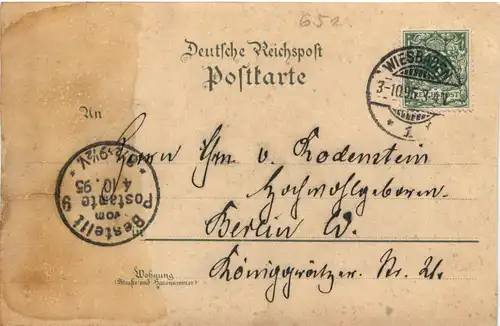 652.
Deutsche Reichspost
Postkarte
WIESBADEN
3-10.95.
1.
An
Herrn Hrn. v. Rodenstein
Hochwohlgeboren
Bestellt
vom
Postamte
9
4.10.95
9½V.
Berlin W.
Wohnung
(Straße und Hausnummer)
Königgrätzer. Str.